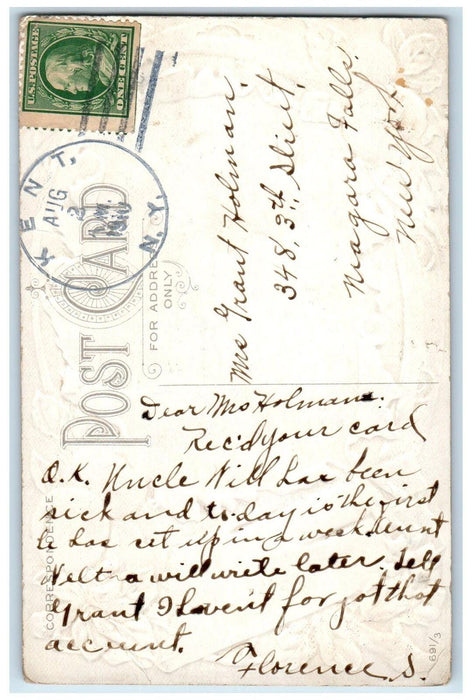 U.S. POSTAGE
ONE CENT
KENT,
N.Y.
AUG
2
1910
POST CARD
FOR ADDRESS
ONLY
CORRESPONDENCE
Mrs Grant Holman.
348, 3rd Street.
Niagara Falls.
New York
Dear Mrs Holman.
Rec'd your card
O.K. Uncle Will has been
sick and to-day is the first
he has set up in a week. Aunt
Neltra will write later. Tell
Grant I havent forgot that
account.
Florence S.
691/3